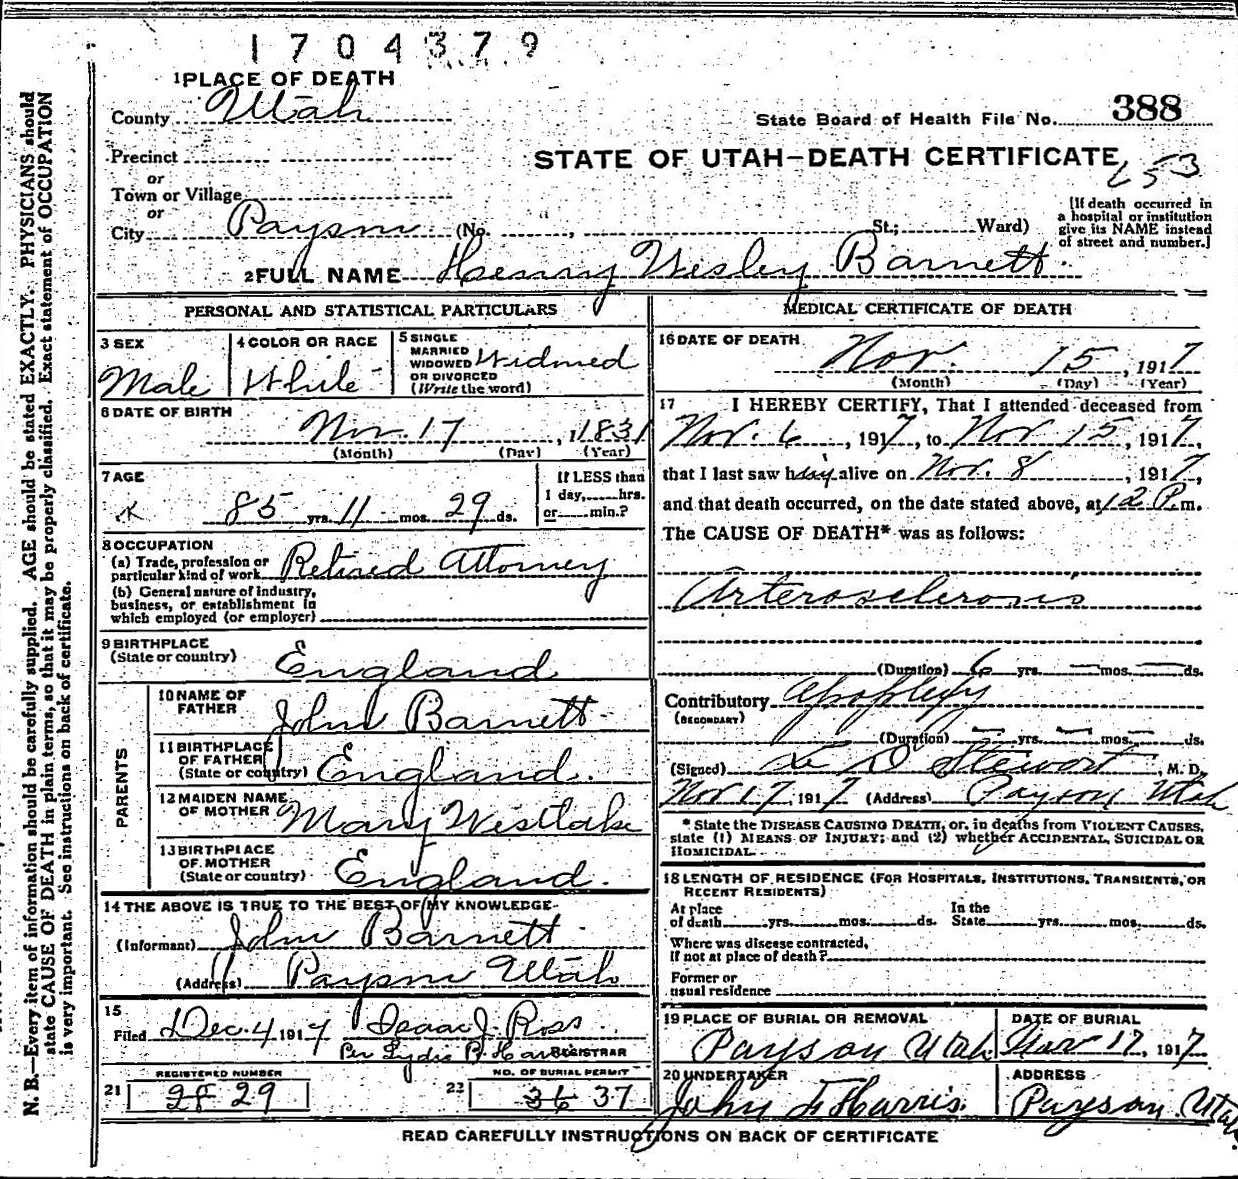 1704379
1 PLACE OF DEATH
County Utah
State Board of Health File No. 388
Precinct
or
STATE OF UTAH—DEATH CERTIFICATE
653
Town or Village
or
City Payson (No. , St.; Ward)
[If death occurred in
a hospital or institution
give its NAME instead
of street and number.]
2 FULL NAME Henry Wesley Barnett
PERSONAL AND STATISTICAL PARTICULARS
3 SEX
Male
4 COLOR OR RACE
White
5 SINGLE
MARRIED
WIDOWED
OR DIVORCED
(Write the word)
Widowed
6 DATE OF BIRTH
Nov. 17, 1831
(Month) (Day) (Year)
7 AGE
85 yrs. 11 mos. 29 ds.
If LESS than
1 day, hrs.
or min.?
8 OCCUPATION
(a) Trade, profession or
particular kind of work Retired Attorney
(b) General nature of industry,
business, or establishment in
which employed (or employer)
9 BIRTHPLACE
(State or country) England
PARENTS
10 NAME OF
FATHER John Barnett
11 BIRTHPLACE
OF FATHER
(State or country) England.
12 MAIDEN NAME
OF MOTHER Mary Westlake
13 BIRTHPLACE
OF MOTHER
(State or country) England.
14 THE ABOVE IS TRUE TO THE BEST OF MY KNOWLEDGE
(Informant) John Barnett
(Address) Payson Utah
15
Filed Dec. 4, 1917 Isaac J. Ross
Per Lydia B. REGISTRAR
REGISTERED NUMBER
21 28 29
NO. OF BURIAL PERMIT
22 36 37
MEDICAL CERTIFICATE OF DEATH
16 DATE OF DEATH
Nov. 15, 1917
(Month) (Day) (Year)
17 I HEREBY CERTIFY, That I attended deceased from
Nov. 6, 1917, to Nov 15, 1917,
that I last saw h alive on Nov. 8, 1917,
and that death occurred, on the date stated above, at 12 P.m.
The CAUSE OF DEATH* was as follows:
Arterosclerosis
(Duration) 6 yrs. — mos. — ds.
Contributory Apoplexy
(SECONDARY)
(Duration) — yrs. — mos. — ds.
(Signed) L D Stewart, M. D.
Nov 17, 1917 (Address) Payson Utah
* State the DISEASE CAUSING DEATH, or, in deaths from VIOLENT CAUSES,
state (1) MEANS OF INJURY; and (2) whether ACCIDENTAL, SUICIDAL OR
HOMICIDAL.
18 LENGTH OF RESIDENCE (FOR HOSPITALS, INSTITUTIONS, TRANSIENTS, OR
RECENT RESIDENTS)
At place
of death yrs. mos. ds.
In the
State yrs. mos. ds.
Where was disease contracted,
If not at place of death?
Former or
usual residence
19 PLACE OF BURIAL OR REMOVAL
Payson Utah
DATE OF BURIAL
Nov 17, 1917
20 UNDERTAKER
John F Harris.
ADDRESS
Payson. Utah
READ CAREFULLY INSTRUCTIONS ON BACK OF CERTIFICATE
N. B.—Every item of information should be carefully supplied. AGE should be stated EXACTLY. PHYSICIANS should
state CAUSE OF DEATH in plain terms, so that it may be properly classified. Exact statement of OCCUPATION
is very important. See instructions on back of certificate.